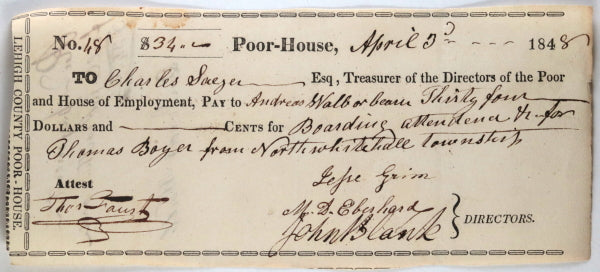 LEHIGH COUNTY POOR-HOUSE.
No. 48 $34.- Poor-House, April 3d - - - 1848
TO Charles Saeger Esq, Treasurer of the Directors of the Poor
and House of Employment, PAY to Andreas Thirty four
DOLLARS and CENTS for Boarding attendenc &c for
Thomas Boyer from Northwhitehall township
Jesse Grim
Attest
Thos Faust
M. D. Eberhard
John Blank
DIRECTORS.